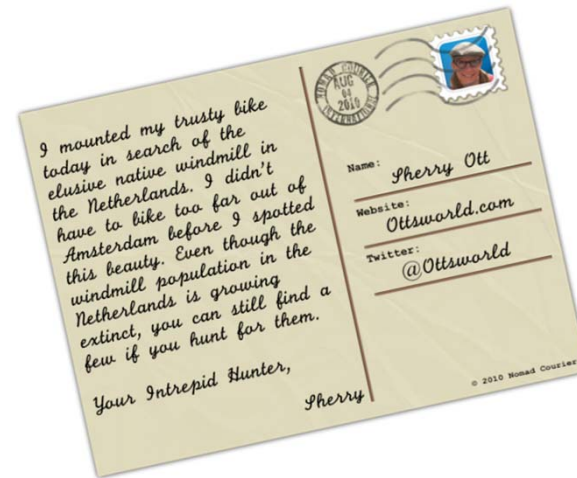 I mounted my trusty bike
today in search of the
elusive native windmill in
the Netherlands. I didn't
have to bike too far out of
Amsterdam before I spotted
this beauty. Even though the
windmill population in the
Netherlands is growing
extinct, you can still find a
few if you hunt for them.
Your Intrepid Hunter,
Sherry
NOMAD COURIER
AUG
04
2010
INTERNATIONAL
Name: Sherry Ott
Website:
Ottsworld.com
Twitter:
@Ottsworld
© 2010 Nomad Courier